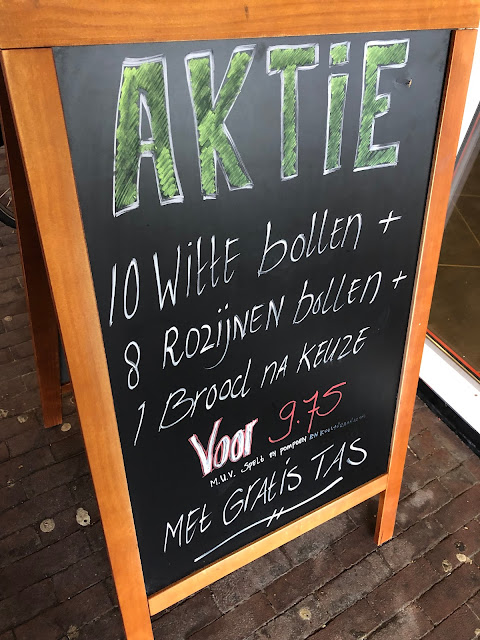 AKTiE
10 Witte bollen +
8 ROZIJNEN bollen +
1 Brood NA KEUZE
Voor 9.75
M.U.V. Spelt en pompoen en
MET GRATIS TAS